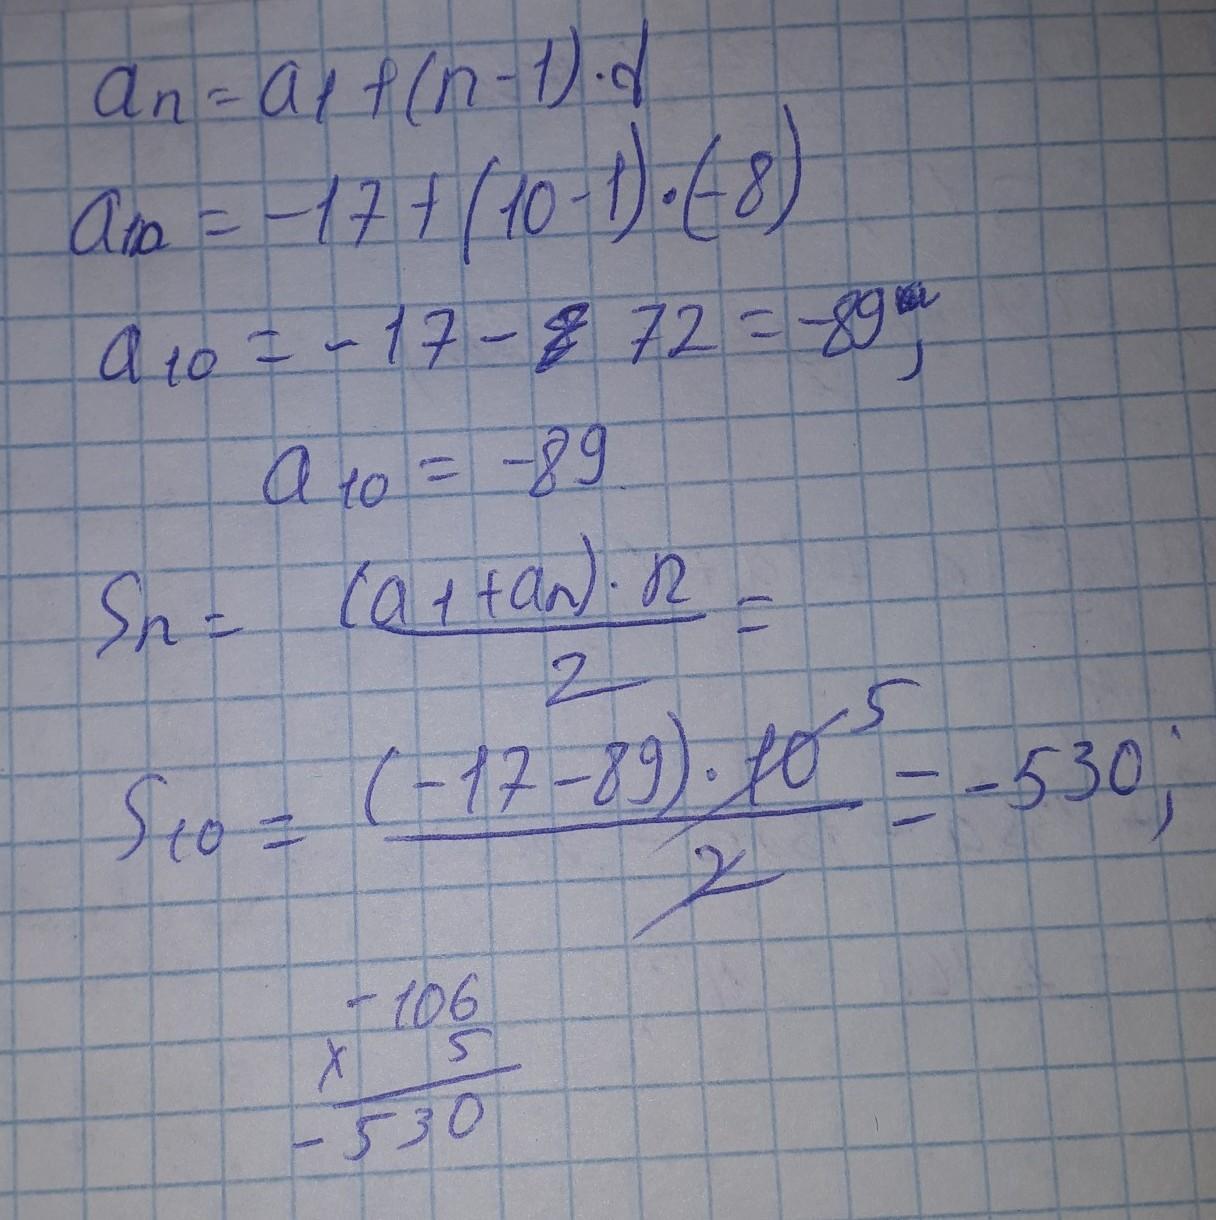 an = a1 + (n-1)·d
a10 = -17 + (10-1)·(-8)
a10 = -17 - 72 = -89;
a10 = -89
Sn = (a1+an)·n / 2 =
S10 = (-17-89)·10 5 / 2 = -530;
-106
x 5
-530